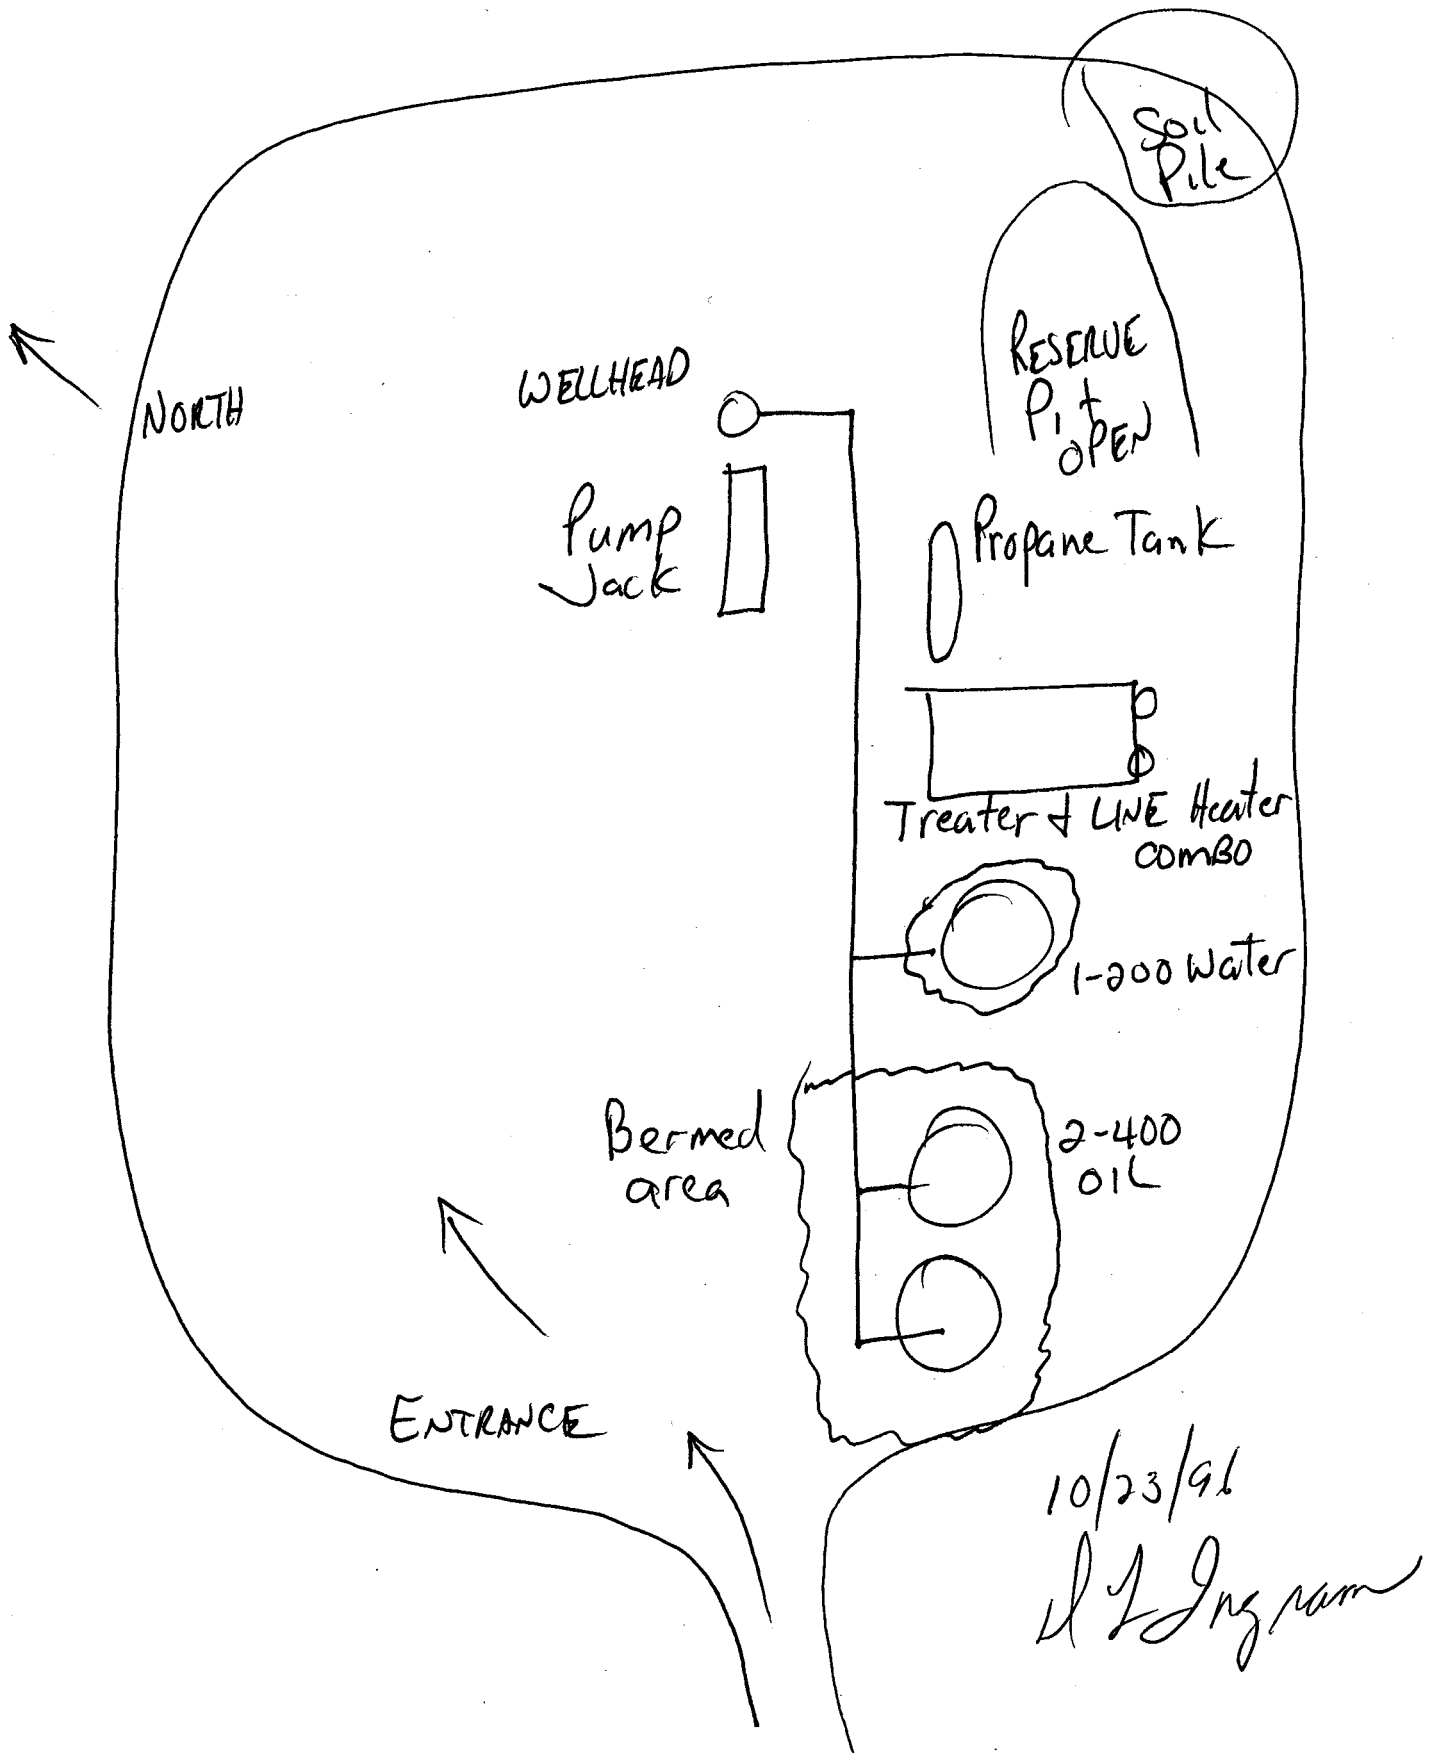 Soil
Pile
NORTH
WELLHEAD
RESERVE
Pit
OPEN
Pump
Jack
Propane Tank
Treater & LINE Heater
COMBO
1-200 Water
Bermed
area
2-400
OIL
ENTRANCE
10/23/96
D L Ingram